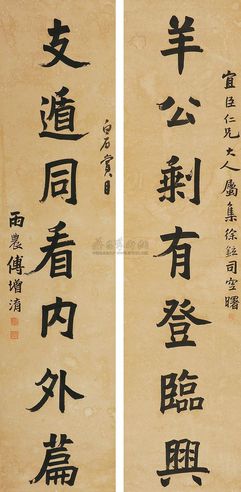 宜臣仁兄大人屬集徐鉉司空曙
羊公剩有登臨興
支遁同看內外篇
白石賞目
雨農傅增淯